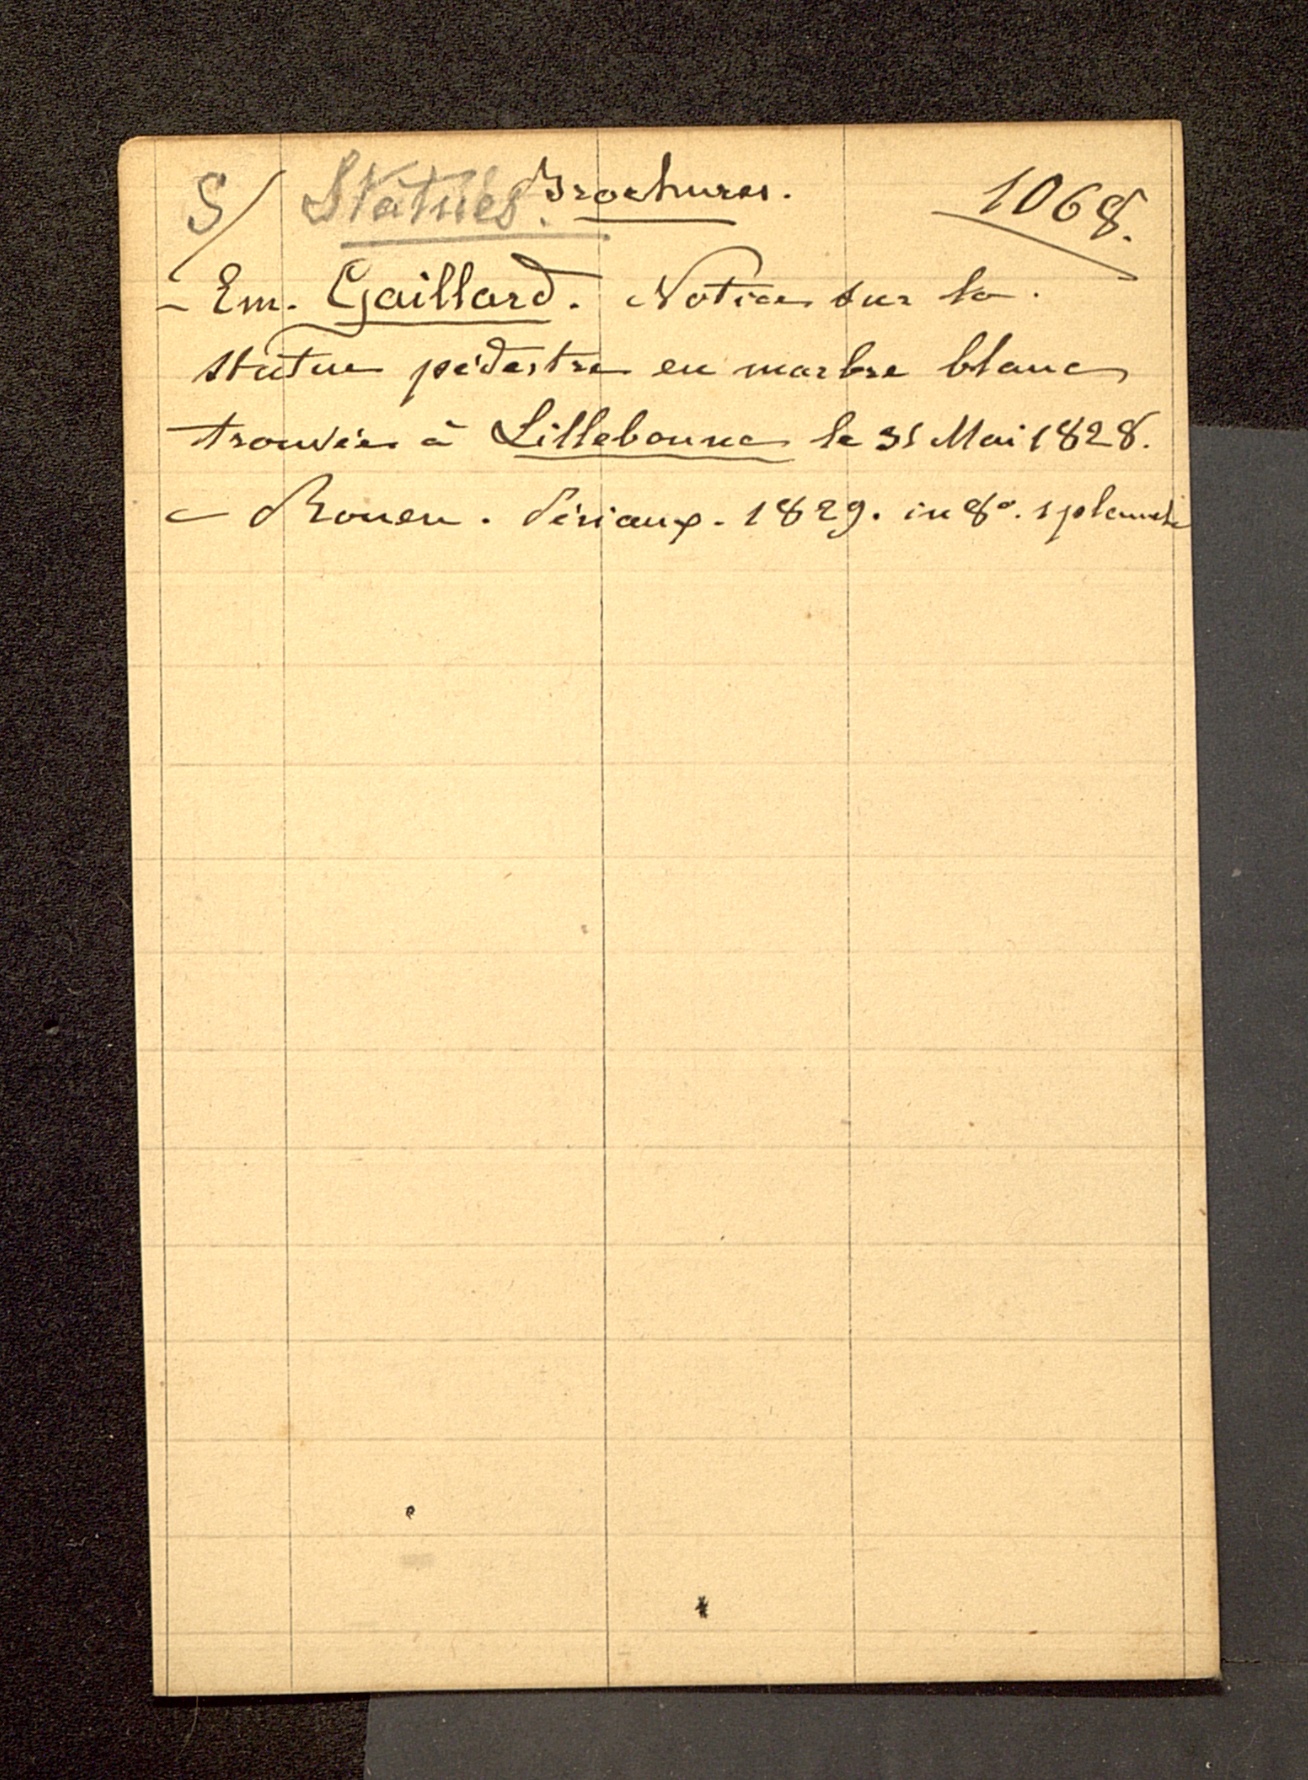 S/ Statues. Brochures. 1068.
- Em. Gaillard. Notice sur la
statue pédestre en marbre blanc
trouvée à Lillebonne le 31 Mai 1828.
- Rouen. Périaux. 1829. in 8º. 1 planche